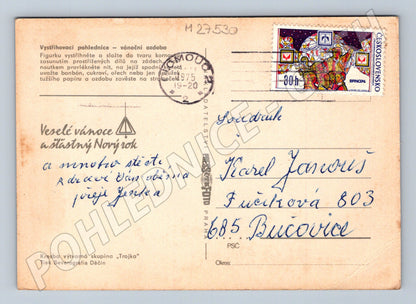 M 27530
Vystřihovací pohlednice - vánoční ozdoba
Figurku vystřihněte a složte do tvaru komolého
zasunutím prostřižených dílů na zádech
noutkem provlékněte nit, na jejíž spodní
uvažte bonbón, cukroví, ořech nebo jen
tužšího papíru a ozdobu zavěste na stromeček
CHOMOUTOV
1975
19-20
2
30h
ČESKOSLOVENSKO
Veselé vánoce
a šťastný Nový rok
a mnoho štěstí
zdraví Vám oběma
přeje Jenka
NAKLADATELSTVÍ
PRAHA
Soudruh
Karel Janouš
Fučíkova 803
685 Bučovice
PSČ
Okres:
Kresba výtvarná skupina „Trojka"
Tisk Severografia Děčín
POHLEDNICE